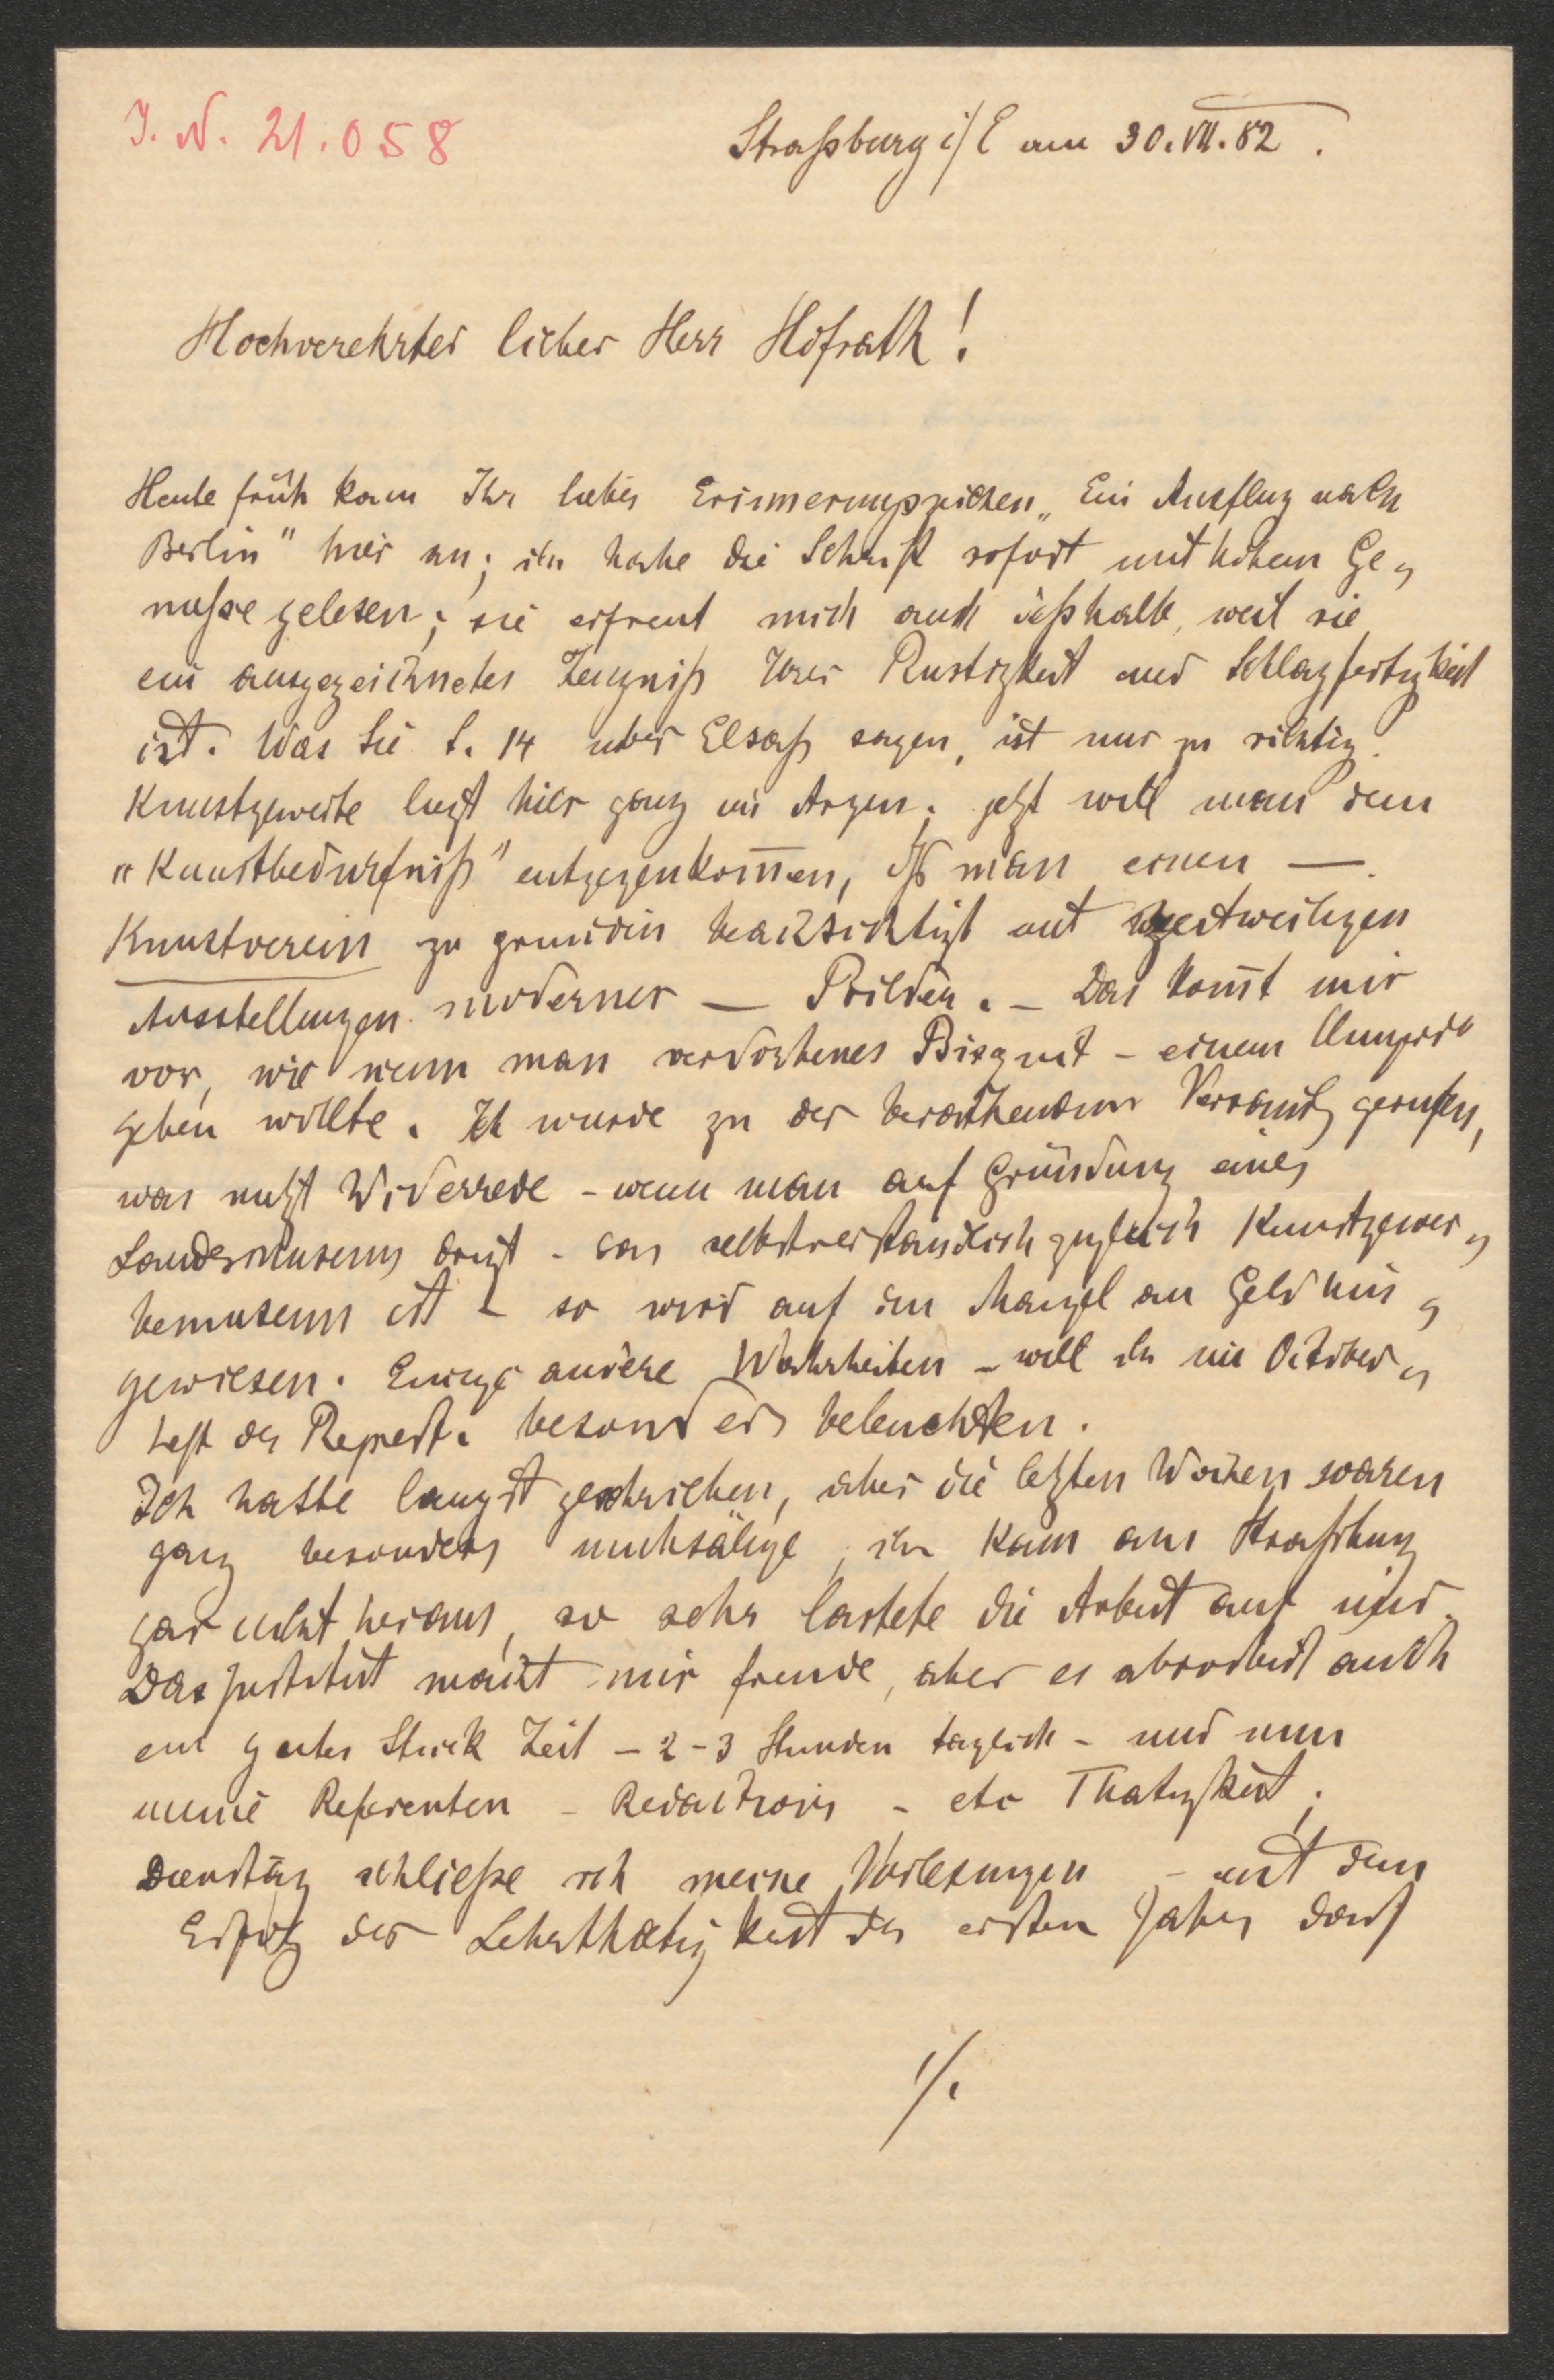 I. N. 21.058
Straßburg i/E am 30.VII.82.
Hochverehrter lieber Herr Hofrath!
Heute früh kam Ihr liebes Erinnerungszeichen „Ein Ausflug nach
Berlin" hier an; ich habe die Schrift sofort mit hohem Ge-
nuße gelesen; sie erfreut mich auch deßhalb, weil sie
ein ausgezeichnetes Zeugniß Ihrer Rustigkeit und Schlagfertigkeit
ist. Was Sie S. 14 über Elsaß sagen, ist nur zu richtig.
Kunstgewerbe liegt hier ganz im Argen; jetzt will man dem
„Kunstbedürfniß" entgegenkom̅en, daß man einen —
Kunstverein zu gründen beabsichtigt mit zeitweiligen
Ausstellungen moderner — Bilder. — Das kom̅t mir
vor, wie wenn man verdorbenes Bisquit - einem
geben wollte. Ich wurde zu der berathenden gerufen,
was nutzt Widerrede - wenn man auf Gründung eines
Landesmuseums dringt - das selbstverständlich zugleich Kunstgewer-
bemuseum ist - so wird auf den Mangel an Geld hin-
gewiesen. Einige andere Wahrheiten - will ich im October-
heft des Repert. besonders beleuchten.
Ich hätte längst geschrieben, aber die letzten Wochen waren
ganz besonders mühsälige, ich kam aus Straßburg
gar nicht heraus, so sehr lastete die Arbeit auf mir.
Das Institut macht mir freude, aber es absorbirt auch
ein gutes Stück Zeit - 2-3 Stunden täglich - und nun
meine Referenten - Redactions - etc Thätigkeit;
Dienstag schließe ich meine Vorlesungen - mit dem
Erfolg der Lehrthätigkeit des ersten Jahres darf
./.